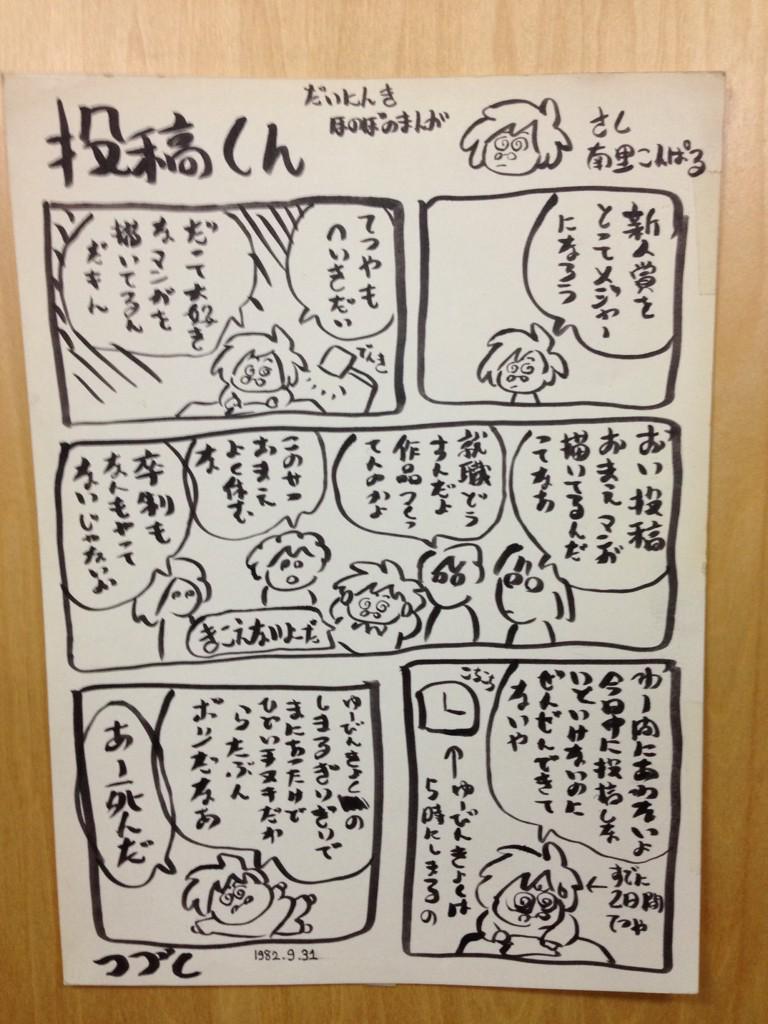 投稿くん
だいにんき
ほのぼのまんが
さく
南里こんぱる
新人賞を
とってメジャー
になろう
てつやも
へいきだい
だって大好き
なマンガを
描いてるん
だもん
でんき
おい投稿
おまえマンガ
描いてるんだ
ってなあ
就職どう
すんだよ
作品つくっ
てんのかよ
このせつ
おまえ
よく休む
な
卒制も
なんもやって
ないじゃないか
きこえないよーだ
ゆー内にあわないよ
今日中に投稿しな
いといけないのに
ぜんぜんできて
ないや
こちこち
↑ゆーびんきょくは
5時にしまるの
←すでに
2日間
てつや
ゆーびんきょくの
しまるぎりぎりで
まにあったけど
ひどい手ヌキだか
らたぶん
ボツだなあ
あー死んだ
つづく
1982.9.31